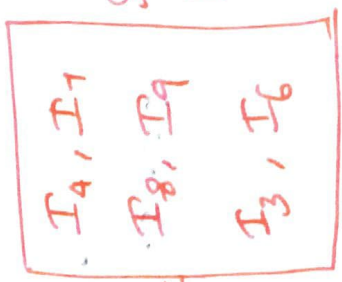 I4, I7
I8, I9
I3, I6